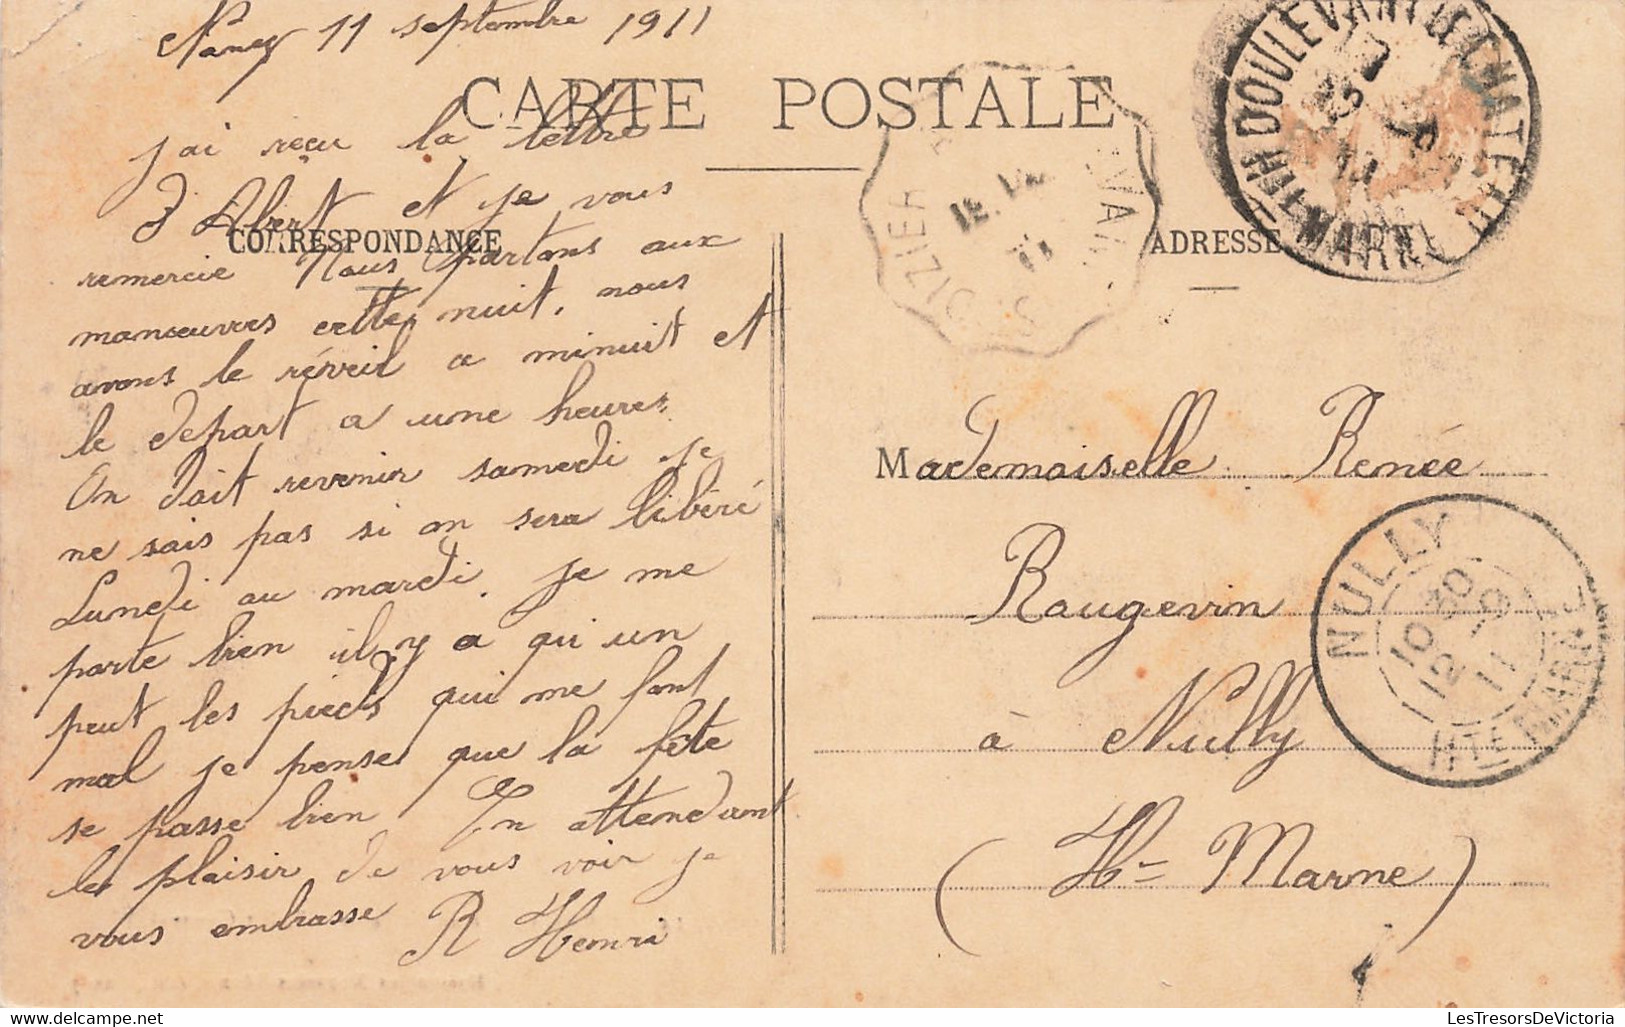 Nancy 11 septembre 1911
CARTE POSTALE
j'ai reçu la lettre
d Albert et je vous
CORRESPONDANCE
remercie Nous partons aux
manœuvres cette nuit, nous
avons le réveil a minuit et
le départ a une heures.
On doit revenir samedi je
ne sais pas si on sera libéré
Lundi ou mardi. je me
porte bien il y a qu'un
peut les pieds qui me font
mal je pense que la fête
se passe bien En attendant
le plaisir de vous voir je
vous embrasse R Henri
ADRESSE
Mademoiselle Renée
Rougevin
à Nully
(Hte Marne)
DOULEVANT-LE-CHATEAU
HTE MARNE
NULLY
10 30
12 9
11
HTE MARNE
LesTresorsDeVictoria